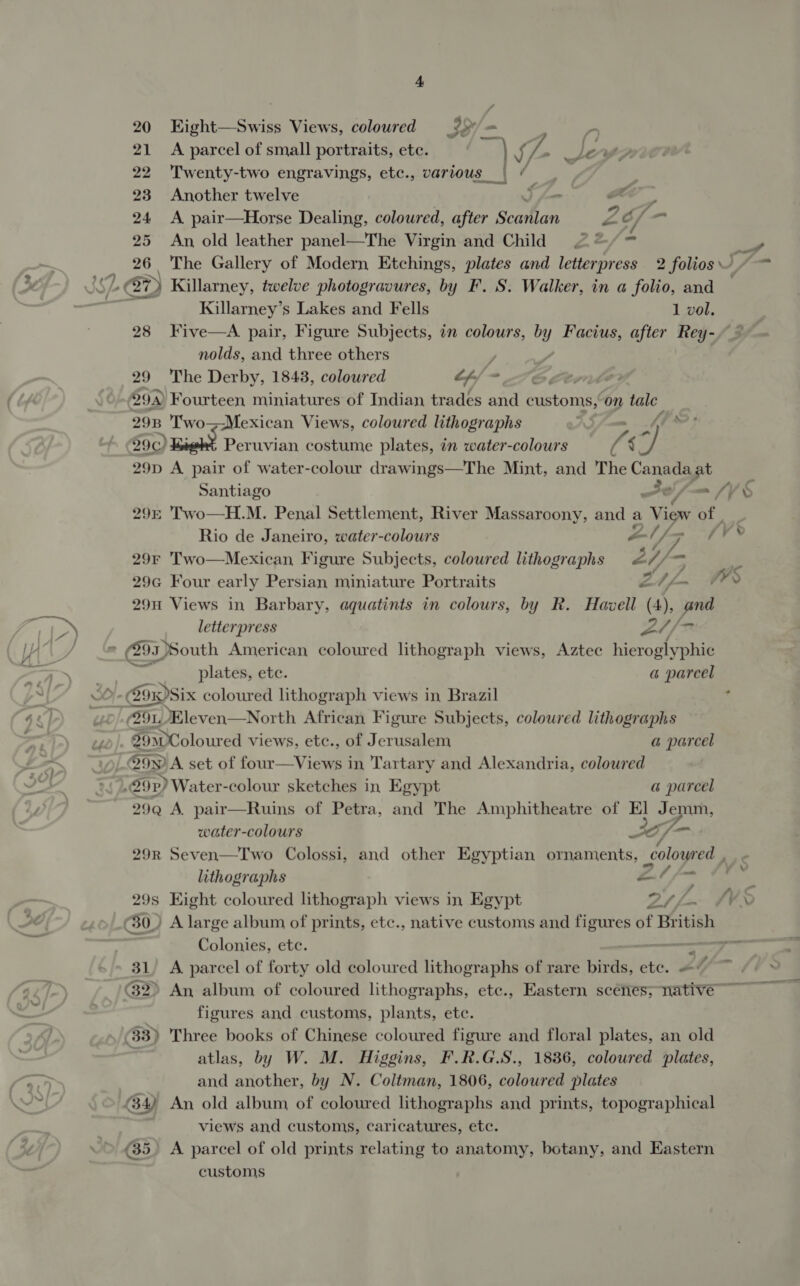 4
20 Eight—Swiss Views, coloured
21 A parcel of small portraits, etc. 5/-
22 Twenty-two engravings, etc., various
23 Another twelve
24 A pair—Horse Dealing, coloured, after Scanlan 26/-
25 An old leather panel—The Virgin and Child 22/-
26 The Gallery of Modern Etchings, plates and letterpress 2 folios
27 Killarney, twelve photogravures, by F. S. Walker, in a folio, and
Killarney's Lakes and Fells 1 vol.
28 Five—A pair, Figure Subjects, in colours, by Facius, after Rey-
nolds, and three others
29 The Derby, 1843, coloured
29A Fourteen miniatures of Indian trades and customs, on talc
29B Two—Mexican Views, coloured lithographs
29C Eight Peruvian costume plates, in water-colours
29D A pair of water-colour drawings—The Mint, and The Canada at
Santiago
29E Two—H.M. Penal Settlement, River Massaroony, and a View of
Rio de Janeiro, water-colours
29F Two—Mexican Figure Subjects, coloured lithographs 21/-
29G Four early Persian miniature Portraits 21/-
29H Views in Barbary, aquatints in colours, by R. Havell (4), and
letterpress 21/-
29J South American coloured lithograph views, Aztec hieroglyphic
plates, etc. a parcel
29K Six coloured lithograph views in Brazil
29L Eleven—North African Figure Subjects, coloured lithographs
29M Coloured views, etc., of Jerusalem a parcel
29N A set of four—Views in Tartary and Alexandria, coloured
29P Water-colour sketches in Egypt a parcel
29Q A pair—Ruins of Petra, and The Amphitheatre of El Jemm,
water-colours
29R Seven—Two Colossi, and other Egyptian ornaments, coloured
lithographs 21/-
29S Eight coloured lithograph views in Egypt 21/-
30 A large album of prints, etc., native customs and figures of British
Colonies, etc.
31 A parcel of forty old coloured lithographs of rare birds, etc.
32 An album of coloured lithographs, etc., Eastern scenes, native
figures and customs, plants, etc.
33 Three books of Chinese coloured figure and floral plates, an old
atlas, by W. M. Higgins, F.R.G.S., 1836, coloured plates,
and another, by N. Coltman, 1806, coloured plates
34 An old album of coloured lithographs and prints, topographical
views and customs, caricatures, etc.
35 A parcel of old prints relating to anatomy, botany, and Eastern
customs